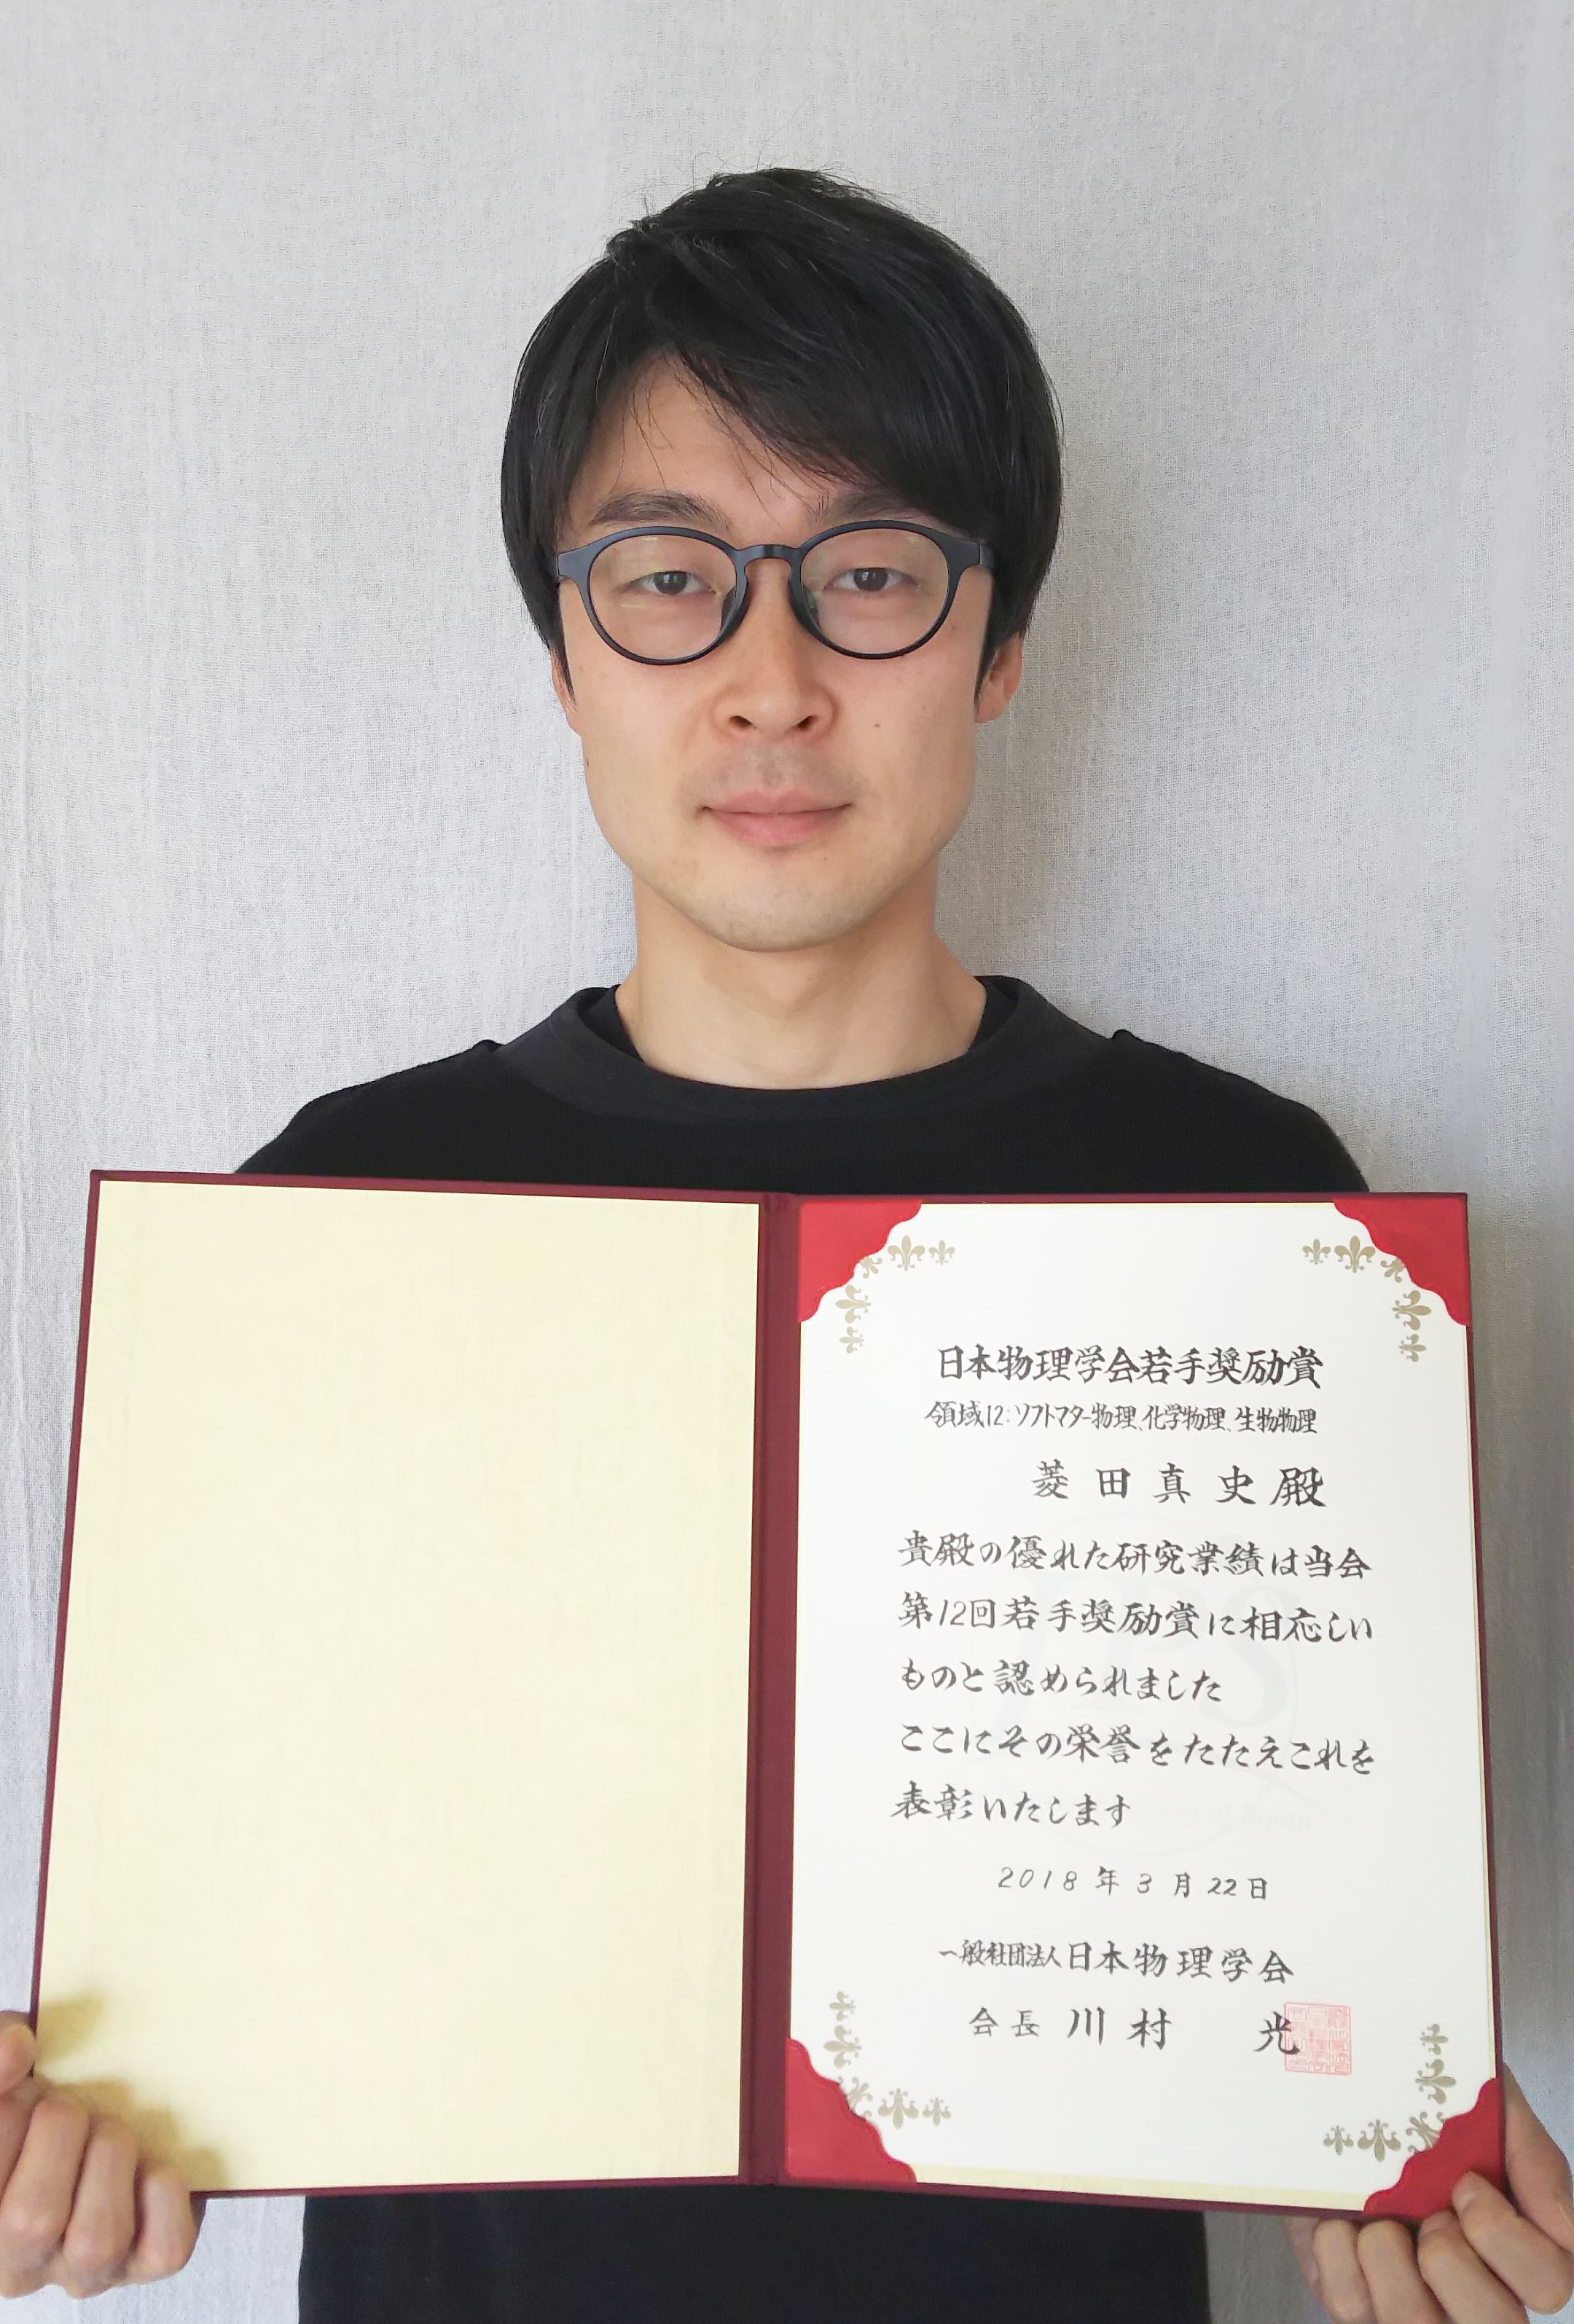 日本物理学会若手奨励賞
領域12:ソフトマター物理、化学物理、生物物理
菱田真史殿
貴殿の優れた研究業績は当会
第12回若手奨励賞に相応しい
ものと認められました
ここにその栄誉をたたえこれを
表彰いたします
2018年3月22日
一般社団法人日本物理学会
会長 川村 光